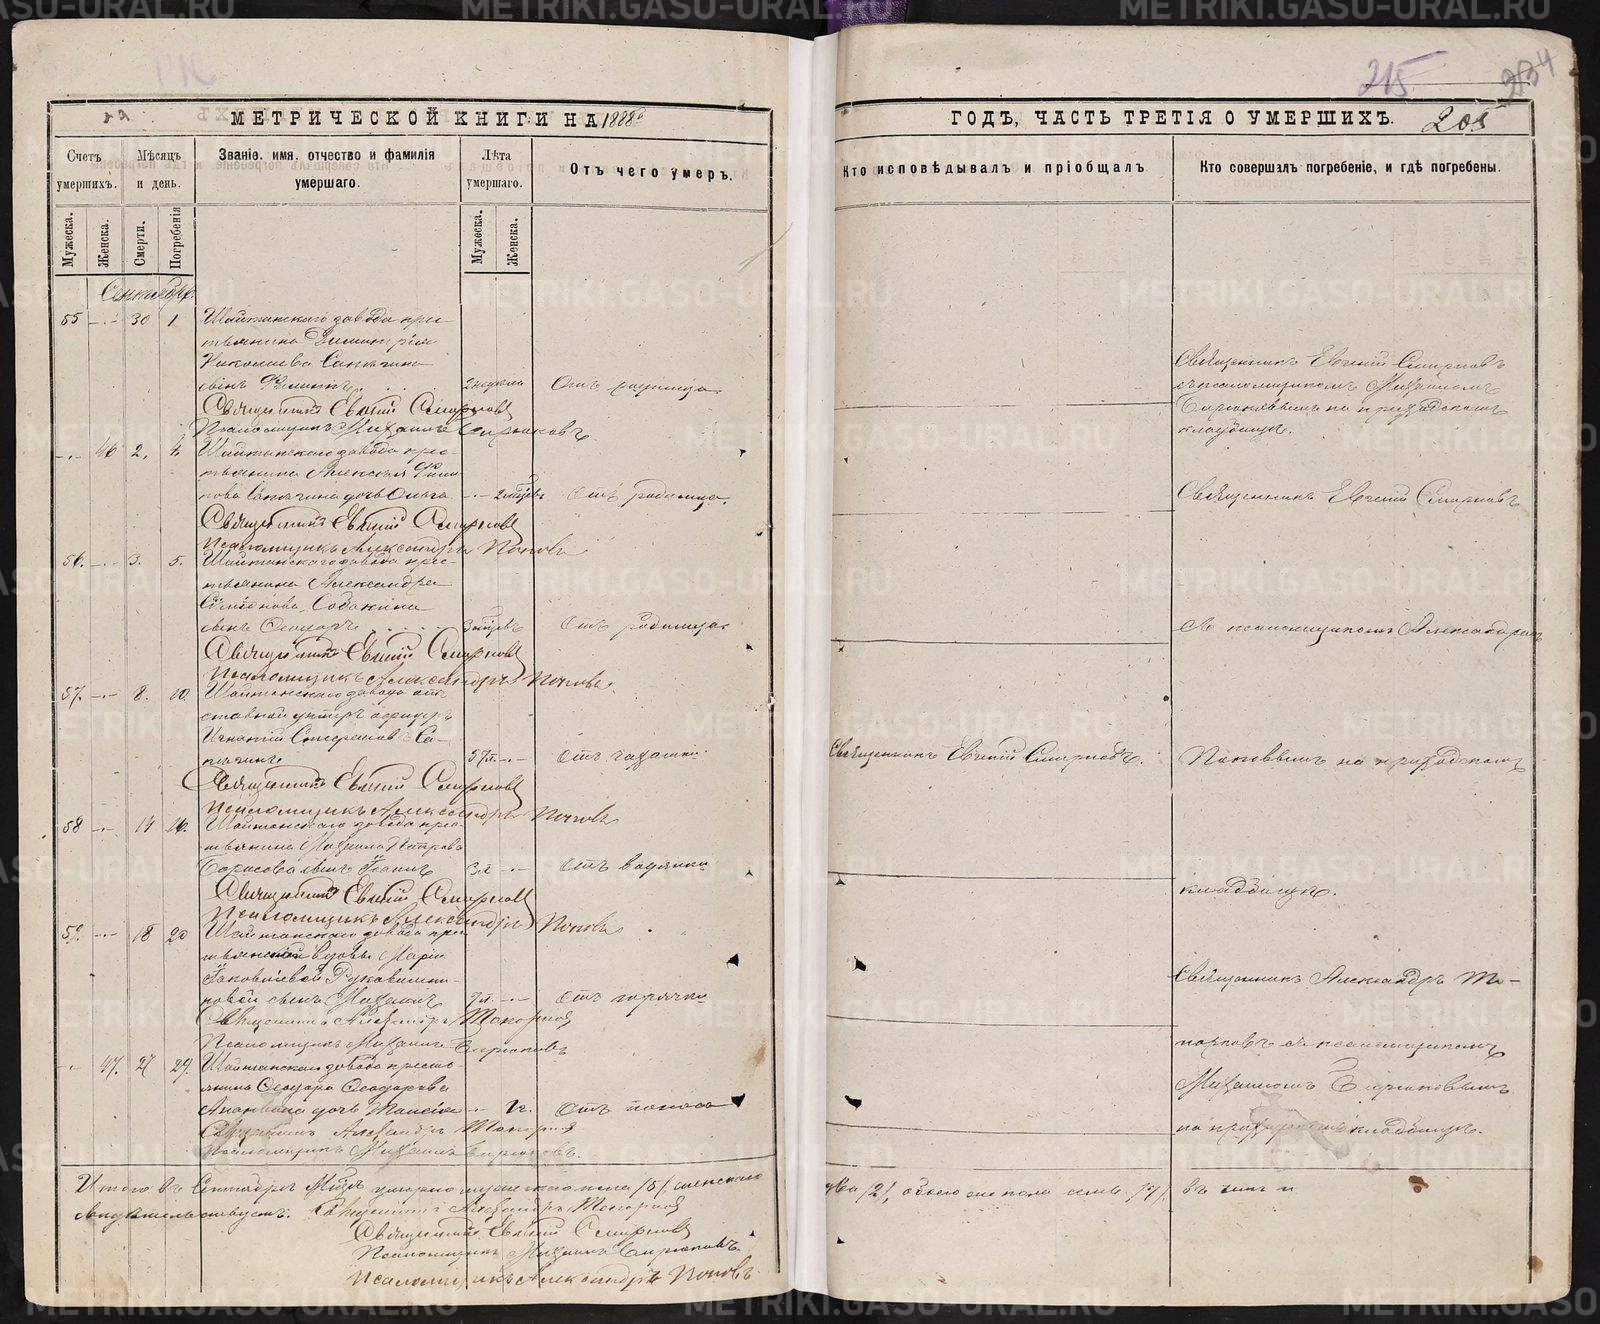 215
234
МЕТРИЧЕСКОЙ КНИГИ НА 1888
Счетъ умершихъ.
Мѣсяцъ и день.
Званіе, имя, отчество и фамилія умершаго.
Лѣта умершаго.
Отъ чего умеръ.
Мужеска.
Женска.
Смерти.
Погребенія
Мужеска.
Женска.
Сентябрь.
55 30 1 Шайтанскаго завода крес-
тьянина Димитрія
Николаева
сынъ Филиппъ 2 недѣли Отъ родимца
Священникъ Евгеній Смирновъ
Псаломщикъ Михаилъ Бирюковъ
46 2. 4. Шайтанскаго завода крес-
тьянина Алексѣя Фили-
пова дочь Ольга Отъ родимца.
Священникъ Евгеній Смирновъ
Псаломщикъ Александръ Поповъ
56. 3. 5. Шайтанскаго завода крес-
тьянина Александра
Симеонова Собакина
сынъ Ѳеодоръ Отъ родимца
Священникъ Евгеній Смирновъ
Псаломщикъ Александръ Поповъ
57. 8. 10. Шайтанскаго завода от-
ставной унтеръ офицеръ
Игнатій
57л. Отъ чахотки
Священникъ Евгеній Смирновъ
Псаломщикъ Александръ Поповъ
58 14 16. Шайтанскаго завода крес-
тьянина Михаила Петрова
Борисова сынъ Іоаннъ Отъ водянки
Священникъ Евгеній Смирновъ
Псаломщикъ Александръ Поповъ
59. 18 20 Шайтанскаго завода крес-
тьянской вдовы Маріи
Яковлевой Рукавишни-
ковой сынъ Михаилъ Отъ горячки
Священникъ Александръ Топорковъ
Псаломщикъ Михаилъ Бирюковъ
47. 27 29. Шайтанскаго завода кресть-
янина Ѳеодора Ѳеодорова
Ананьина дочь Таисія Отъ поноса
Священникъ Александръ Топорковъ
Псаломщикъ Михаилъ Бирюковъ.
Итого въ Сентябрѣ М-цѣ умерло мужескаго пола /5/, женскаго
Священникъ Александръ Топорковъ
Священникъ Евгеній Смирновъ
Псаломщикъ Михаилъ Бирюковъ.
Псаломщикъ Александръ Поповъ
ГОДЪ, ЧАСТЬ ТРЕТІЯ О УМЕРШИХЪ. 205
Кто исповѣдывалъ и пріобщалъ
Кто совершалъ погребеніе, и гдѣ погребены.
Священникъ Евгеній Смирновъ
съ псаломщикомъ Михаиломъ
Бирюковымъ на приходскомъ
кладбищѣ.
Священникъ Евгеній Смирновъ
съ псаломщикомъ Александромъ
Священникъ Евгеній Смирновъ.
Поповымъ на приходскомъ
кладбищѣ.
Священникъ Александръ То-
порковъ съ псаломщикомъ
Михаиломъ Бирюковымъ
на приходскомъ кладбищѣ.
два /2/, обоего же пола семь /7/, въ чемъ и
METRIKI.GASO-URAL.RU